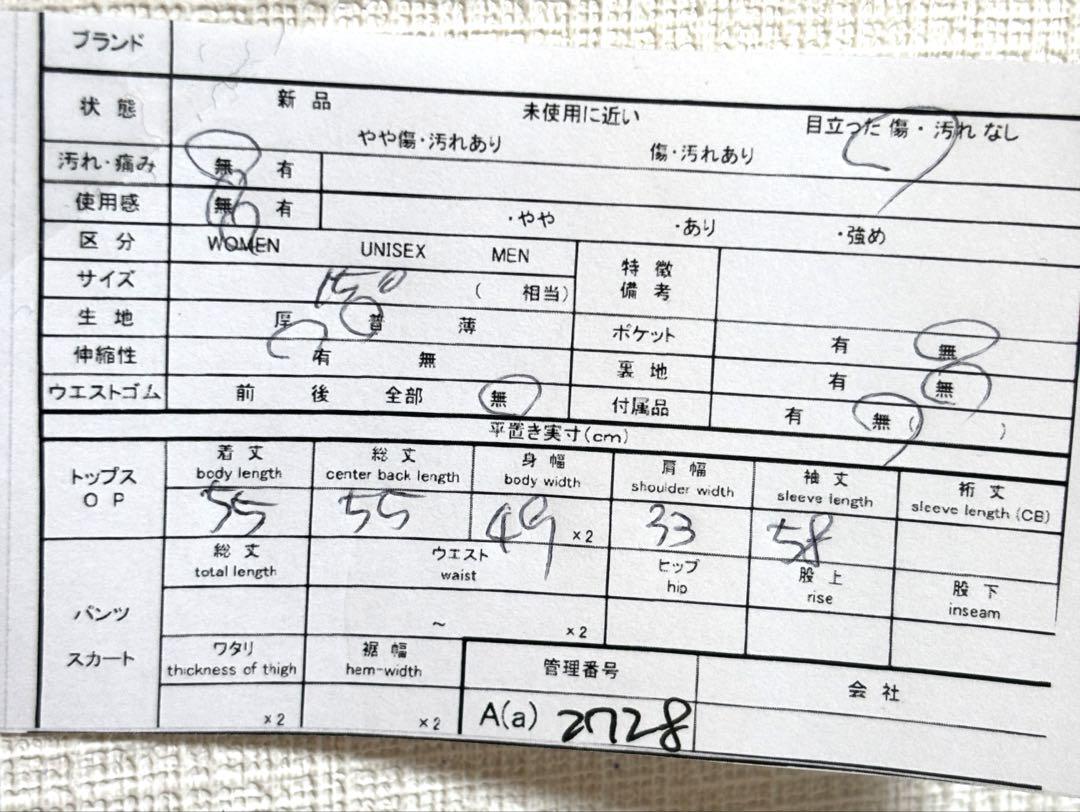 ブランド
状態 新品 未使用に近い 目立った傷・汚れなし
やや傷・汚れあり 傷・汚れあり
汚れ・痛み 無 有
使用感 無 有 ・やや ・あり ・強め
区分 WOMEN UNISEX MEN 特徴備考
サイズ 150 (相当)
生地 厚 普 薄 ポケット 有 無
伸縮性 有 無 裏地 有 無
ウエストゴム 前 後 全部 無 付属品 有 無( )
平置き実寸(cm)
トップス OP 着丈 総丈 身幅 肩幅 袖丈 裄丈
body length center back length body width shoulder width sleeve length sleeve length (CB)
55 55 49 ×2 33 58
総丈 ウエスト ヒップ 股上 股下
total length waist hip rise inseam
パンツ ~ ×2
スカート ワタリ 裾幅 管理番号 会社
thickness of thigh hem-width
×2 ×2 A(a) 2728